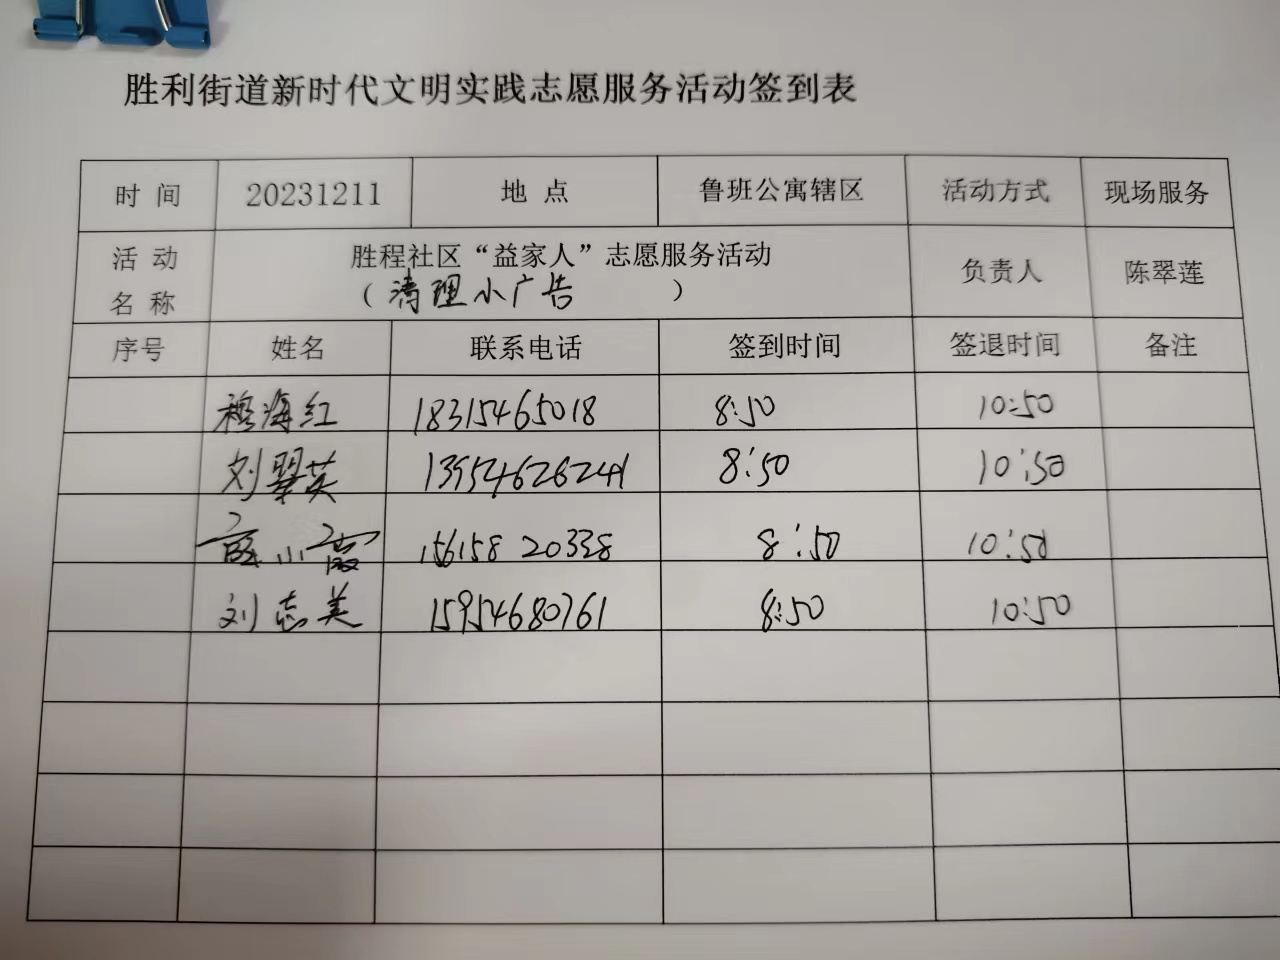 胜利街道新时代文明实践志愿服务活动签到表
时 间 20231211 地 点 鲁班公寓辖区 活动方式 现场服务
活 动 名 称 胜程社区“益家人”志愿服务活动 负责人 陈翠莲
（清理小广告 ）
序号 姓名 联系电话 签到时间 签退时间 备注
穆海红 18315465018 8:50 10:50
刘翠英 13954626241 8:50 10:50
小霞 15615820338 8:50 10:50
刘志美 15954680761 8:50 10:50